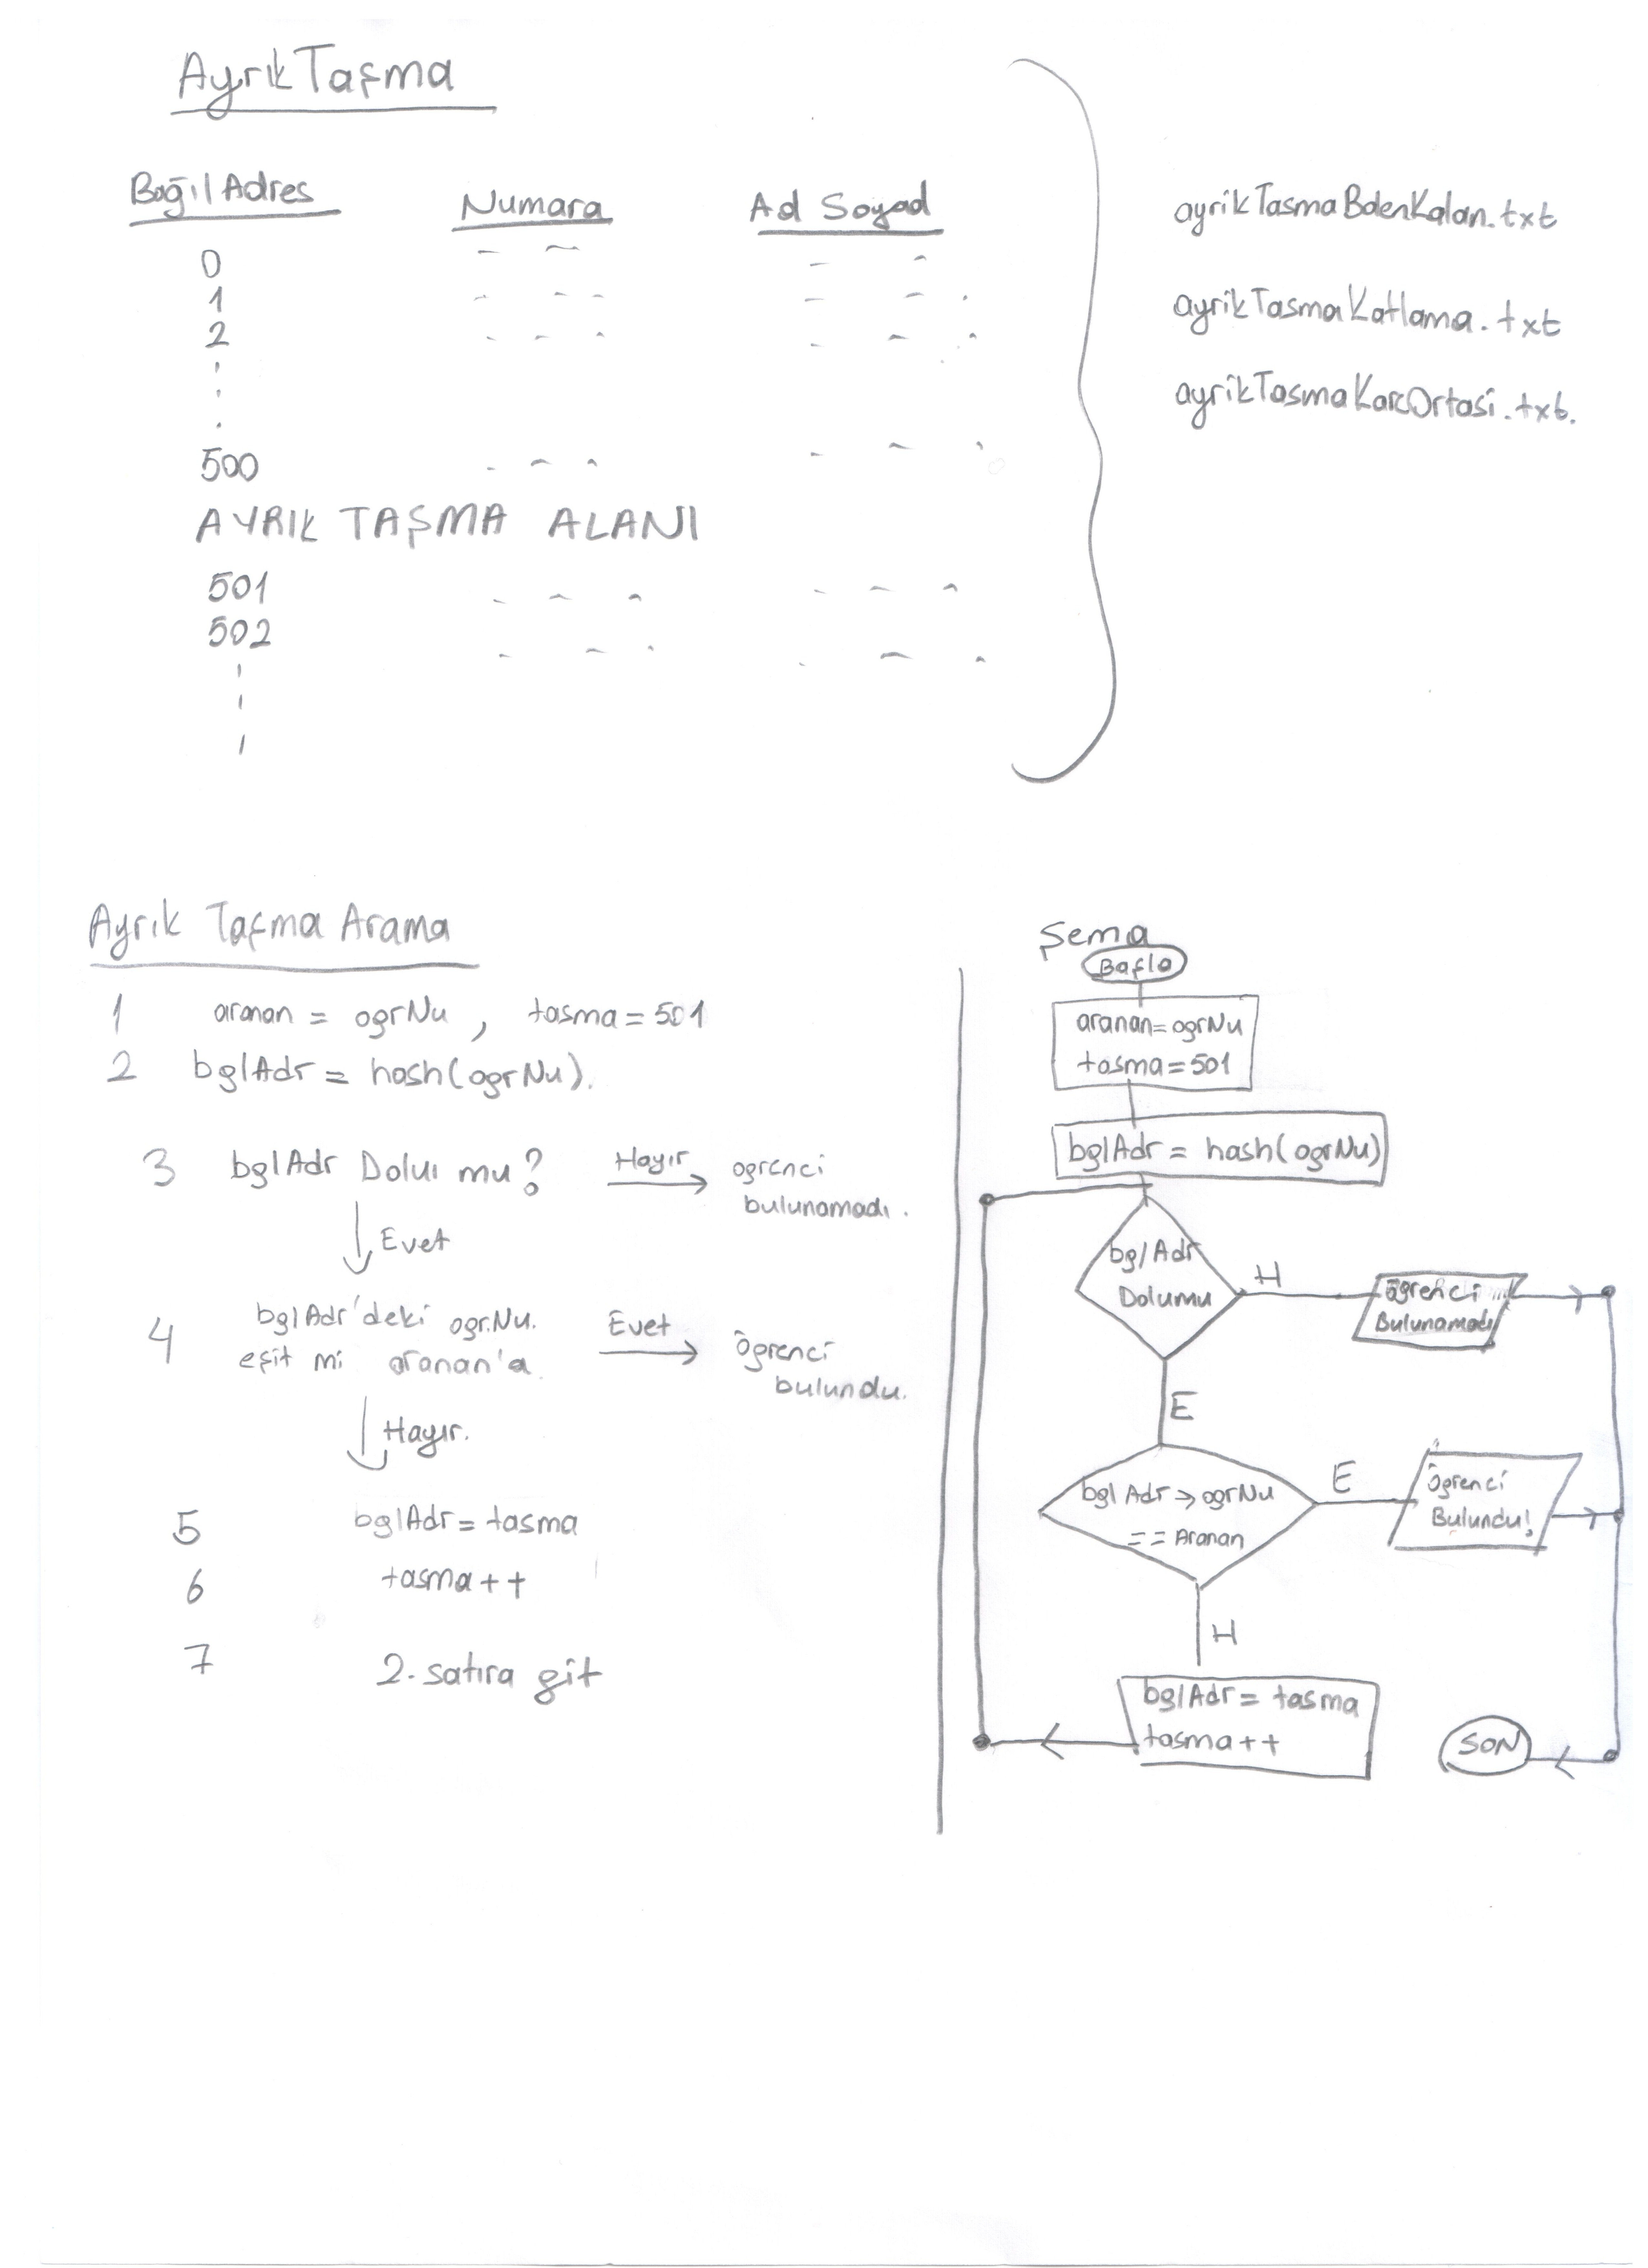 Ayrık Taşma
Bağıl Adres Numara Ad Soyad
0
1
2
500
AYRIK TAŞMA ALANI
501
502
ayrikTasmaBolenKalan.txt
ayrikTasmaKatlama.txt
ayrikTasmaKareOrtasi.txt.
Ayrık Taşma Arama
1 aranan = ogrNu, tasma = 501
2 bglAdr = hash(ogrNu).
3 bglAdr Dolu mu? Hayır ogrenci
bulunamadı.
Evet
4 bglAdr'deki ogr.Nu. Evet öğrenci
eşit mi aranan'a. bulundu.
Hayır.
5 bglAdr = tasma
6 tasma++
7 2. satıra git
Şema
Başla
aranan=ogrNu
tasma=501
bglAdr = hash(ogrNu)
bglAdr
Dolumu
H
öğrenci
Bulunamadı
E
bglAdr→ogrNu
== Aranan
E
Öğrenci
Bulundu!
H
bglAdr = tasma
tasma++
SON